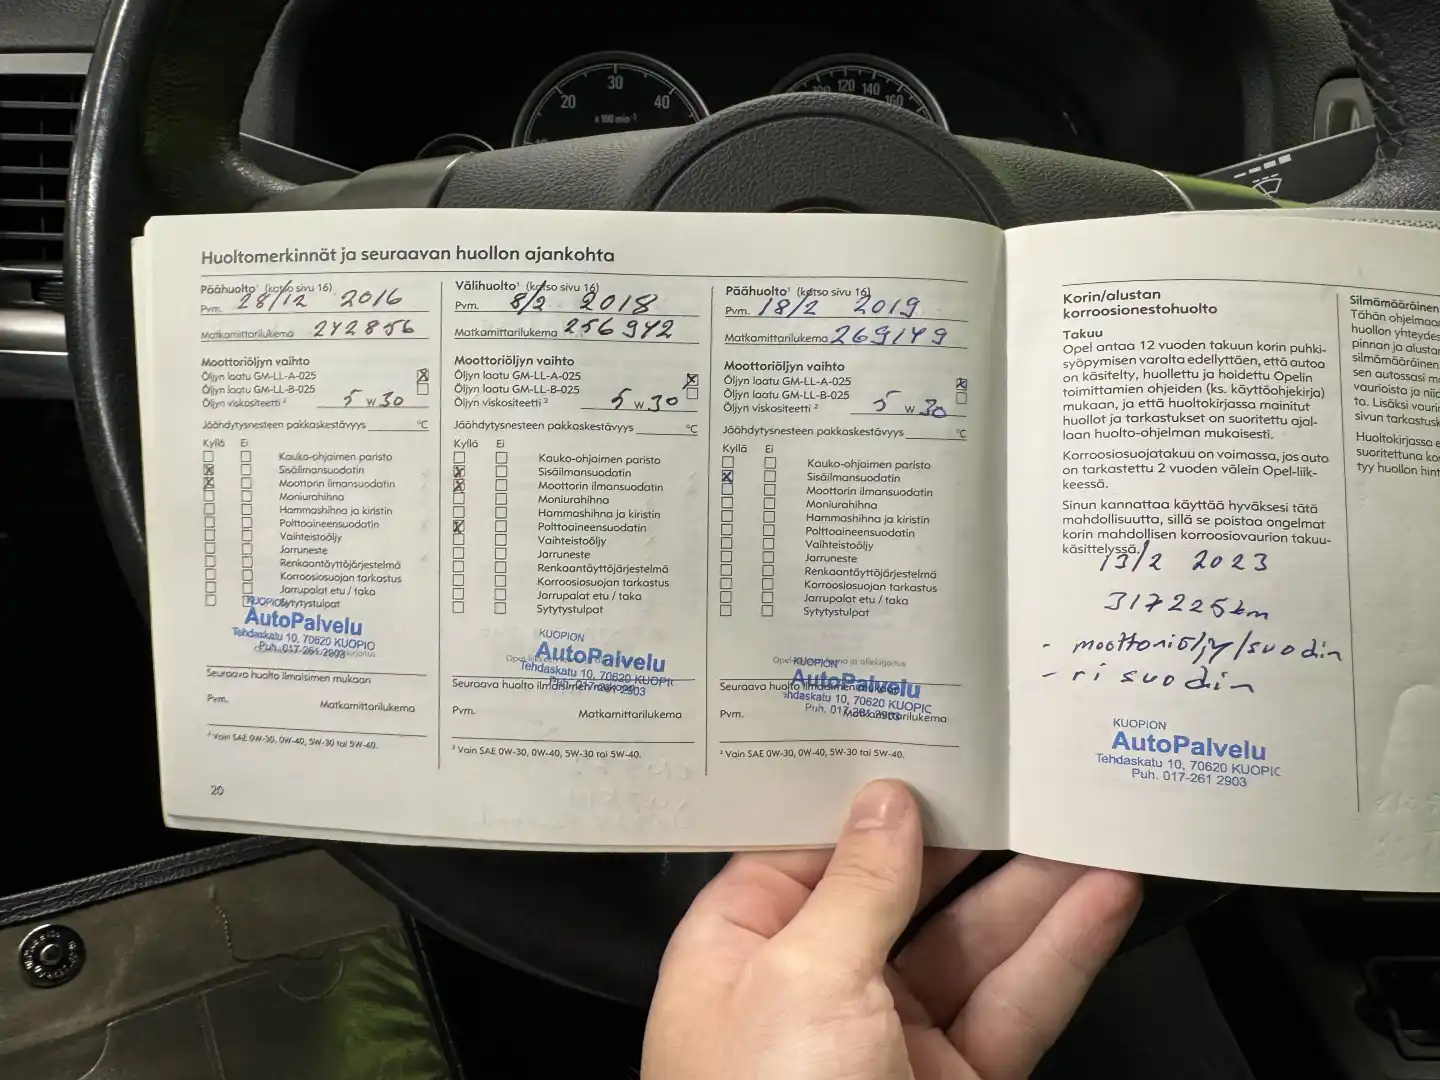 20
30
40
x 100 min⁻¹
100
120
140
160
Huoltomerkinnät ja seuraavan huollon ajankohta
Päähuolto¹ (katso sivu 16)
Pvm. 28/12 2016
Matkamittarilukema 242856
Moottoriöljyn vaihto
Öljyn laatu GM-LL-A-025 X
Öljyn laatu GM-LL-B-025
Öljyn viskositeetti ² 5 w 30
Jäähdytysnesteen pakkaskestävyys °C
Kyllä Ei
Kauko-ohjaimen paristo
X Sisäilmansuodatin
X Moottorin ilmansuodatin
Moniurahihna
Hammashihna ja kiristin
Polttoaineensuodatin
Vaihteistoöljy
Jarruneste
Renkaantäyttöjärjestelmä
Korroosiosuojan tarkastus
Jarrupalat etu / taka
Sytytystulpat
KUOPION
AutoPalvelu
Tehdaskatu 10, 70620 KUOPIO
Puh. 017-261 2903
Seuraava huolto ilmaisimen mukaan
Pvm. Matkamittarilukema
² Vain SAE 0W-30, 0W-40, 5W-30 tai 5W-40.
20
Välihuolto¹ (katso sivu 16)
Pvm. 8/2 2018
Matkamittarilukema 256942
Moottoriöljyn vaihto
Öljyn laatu GM-LL-A-025 X
Öljyn laatu GM-LL-B-025
Öljyn viskositeetti ² 5 w 30
Jäähdytysnesteen pakkaskestävyys °C
Kyllä Ei
Kauko-ohjaimen paristo
X Sisäilmansuodatin
X Moottorin ilmansuodatin
Moniurahihna
Hammashihna ja kiristin
X Polttoaineensuodatin
Vaihteistoöljy
Jarruneste
Renkaantäyttöjärjestelmä
Korroosiosuojan tarkastus
Jarrupalat etu / taka
Sytytystulpat
KUOPION
AutoPalvelu
Tehdaskatu 10, 70620 KUOPI
Puh. 017-261 2903
Seuraava huolto ilmaisimen mukaan
Pvm. Matkamittarilukema
² Vain SAE 0W-30, 0W-40, 5W-30 tai 5W-40.
Päähuolto¹ (katso sivu 16)
Pvm. 18/2 2019
Matkamittarilukema 269149
Moottoriöljyn vaihto
Öljyn laatu GM-LL-A-025 X
Öljyn laatu GM-LL-B-025
Öljyn viskositeetti ² 5 w 30
Jäähdytysnesteen pakkaskestävyys °C
Kyllä Ei
Kauko-ohjaimen paristo
X Sisäilmansuodatin
Moottorin ilmansuodatin
Moniurahihna
Hammashihna ja kiristin
Polttoaineensuodatin
Vaihteistoöljy
Jarruneste
Renkaantäyttöjärjestelmä
Korroosiosuojan tarkastus
Jarrupalat etu / taka
Sytytystulpat
KUOPION ja allekirjoitus
AutoPalvelu
Seuraava huolto ilmaisimen mukaan
hdaskatu 10, 70620 KUOPIC
Puh. 017-261 2903
Pvm. Matkamittarilukema
² Vain SAE 0W-30, 0W-40, 5W-30 tai 5W-40.
Korin/alustan
korroosionestohuolto
Takuu
Opel antaa 12 vuoden takuun korin puhki-
syöpymisen varalta edellyttäen, että autoa
on käsitelty, huollettu ja hoidettu Opelin
toimittamien ohjeiden (ks. käyttöohjekirja)
mukaan, ja että huoltokirjassa mainitut
huollot ja tarkastukset on suoritettu ajal-
laan huolto-ohjelman mukaisesti.
Korroosiosuojatakuu on voimassa, jos auto
on tarkastettu 2 vuoden välein Opel-liik-
keessä.
Sinun kannattaa käyttää hyväksesi tätä
mahdollisuutta, sillä se poistaa ongelmat
korin mahdollisen korroosiovaurion takuu-
käsittelyssä.
13/2 2023
317225km
- moottoriöljy/suodin
- ri suodin
KUOPION
AutoPalvelu
Tehdaskatu 10, 70620 KUOPIC
Puh. 017-261 2903
Silmämääräinen
Tähän ohjelmaa
huollon yhteydes
pinnan ja alustar
silmämääräinen
sen autossasi m
vaurioista ja niid
ta. Lisäksi vauri
sivun tarkastusk
Huoltokirjassa e
suoritettuna ko
tyy huollon hint